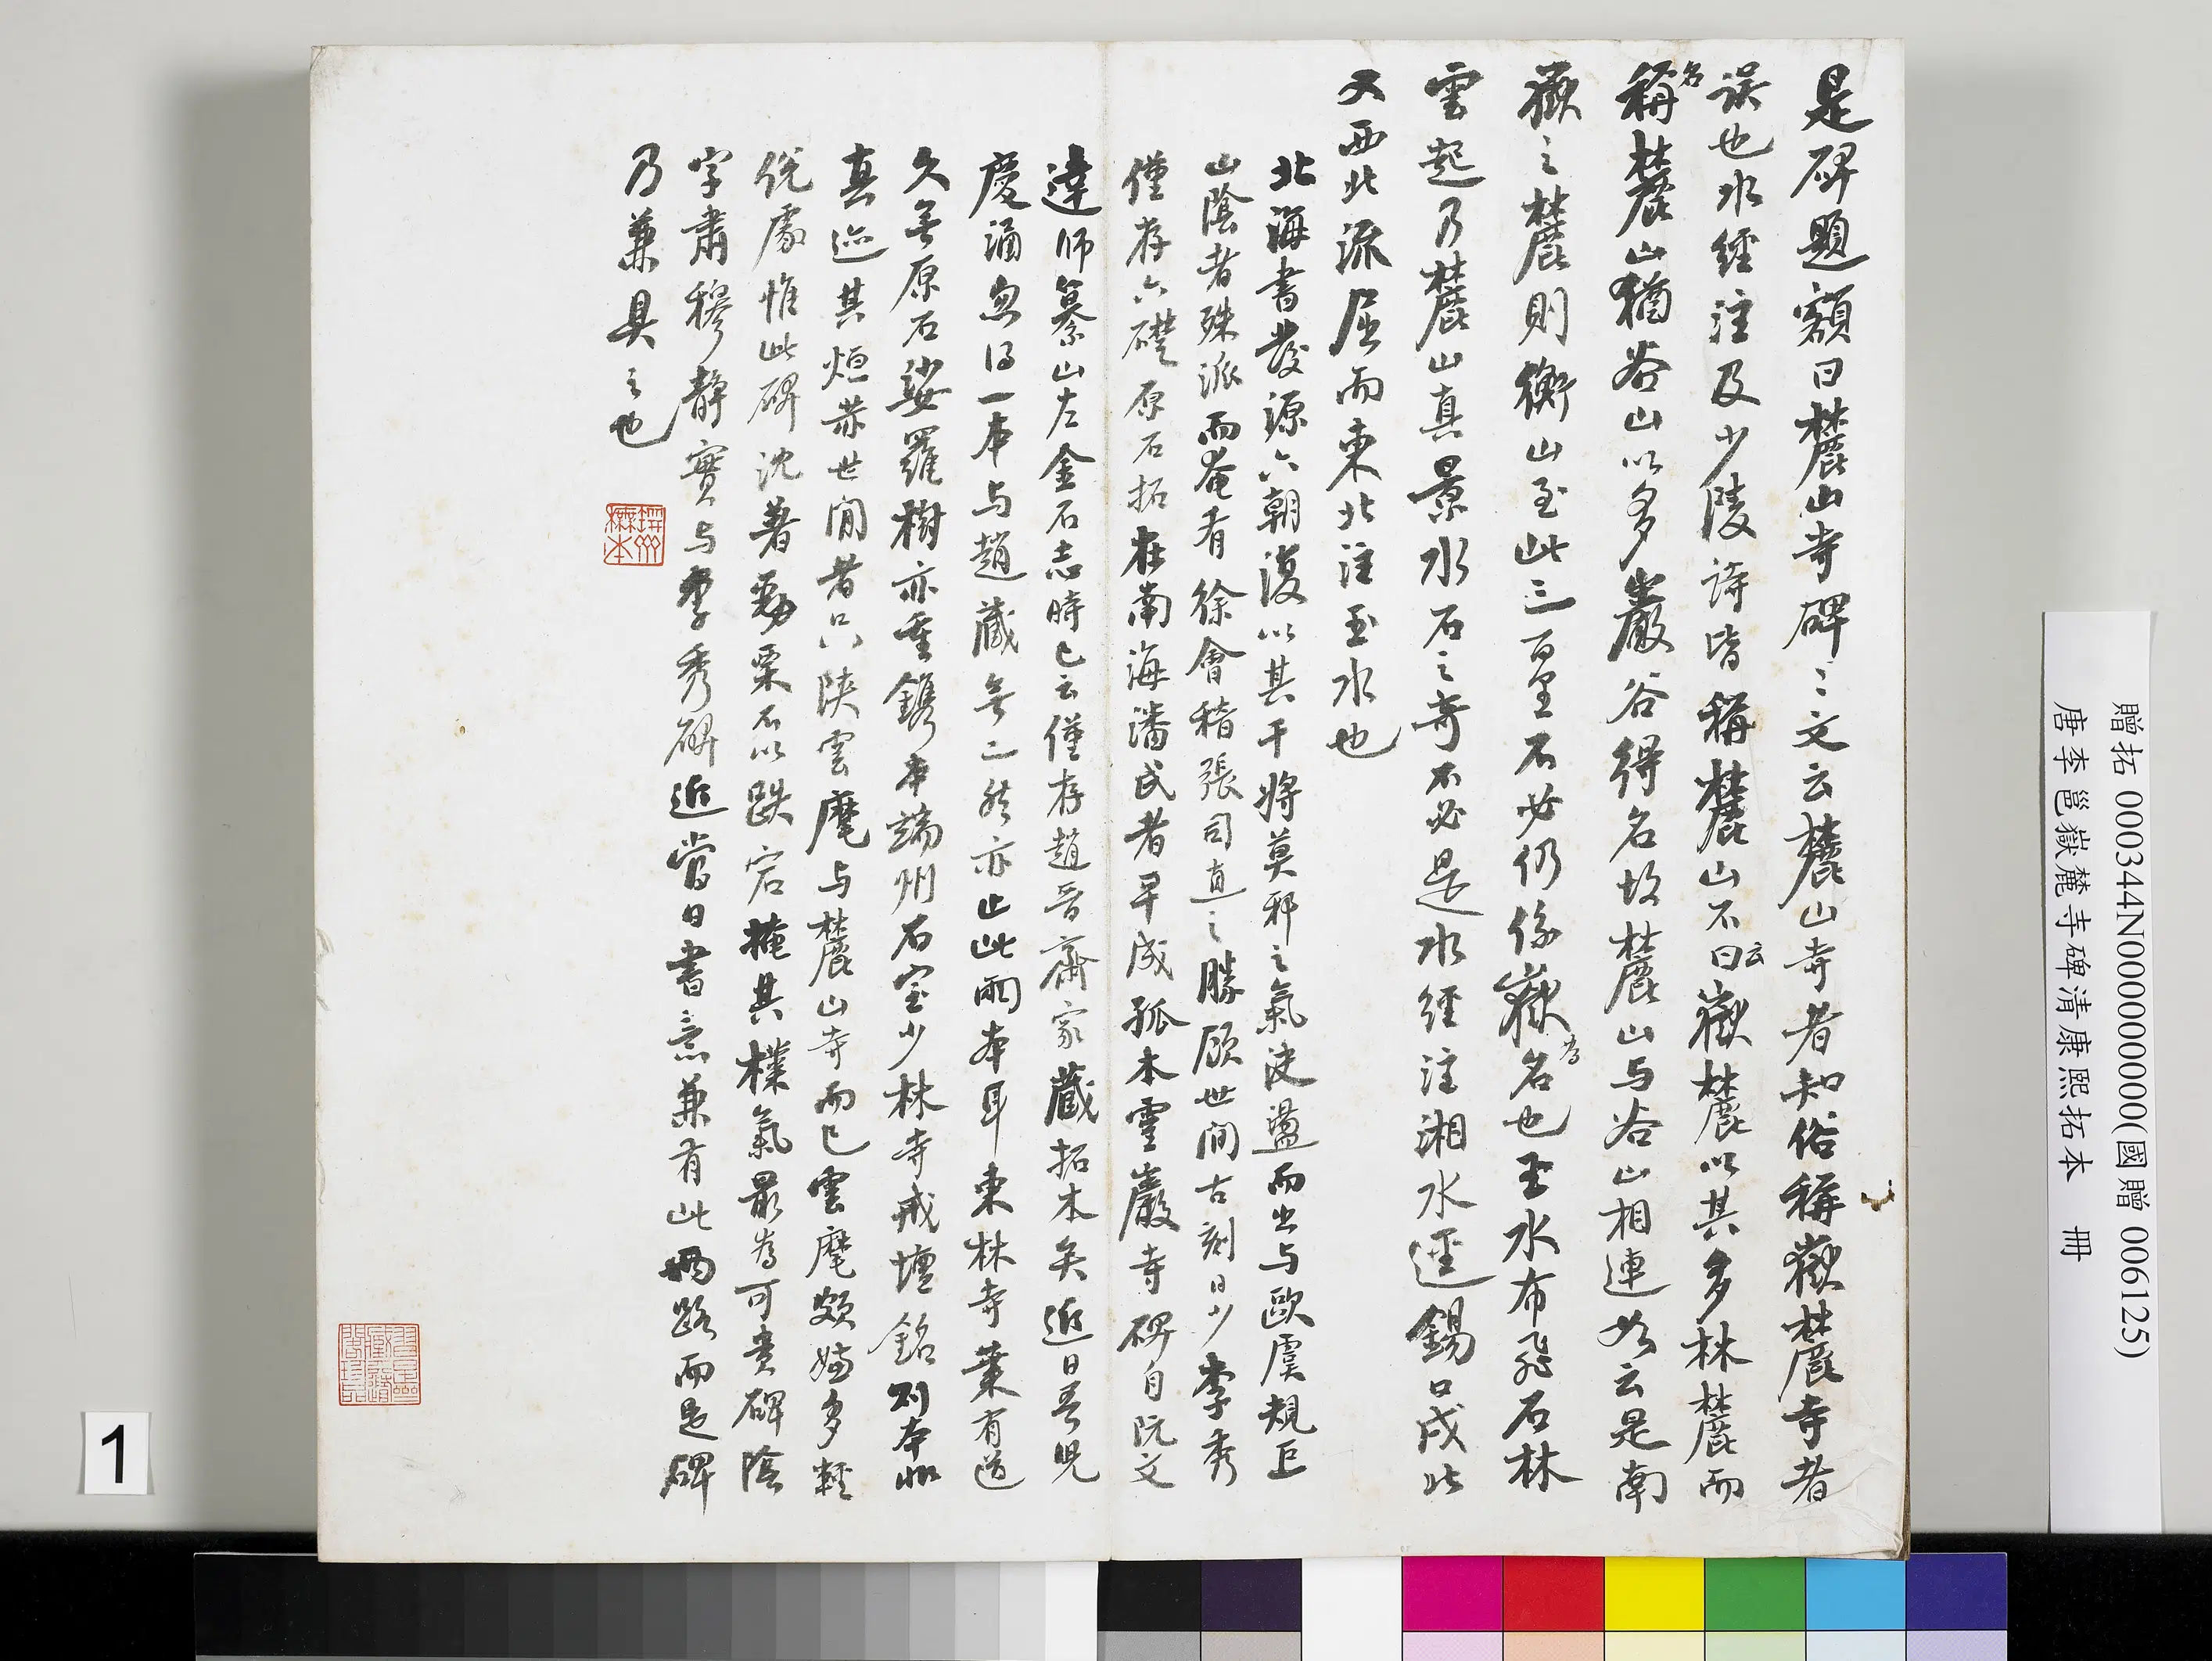 是碑題額曰麓山寺碑〻文云麓山寺者知俗稱嶽麓寺者
誤也水經注及少陵詩皆稱麓山不曰云嶽麓以其多林麓而
名稱麓山猶谷山以多巖谷得名故麓山与谷山相連如云是南
嶽之麓則衡山至此三百里石必仍係嶽名為也至水布飛石林
雲起乃麓山真景水石之奇不必是水經注湘水逕錫口戍北
又西北流屈而東北注玉水也
北海書發源六朝復以其干將莫邪之氣決盪而出与歐虞規巨
山陰者殊派而奄有徐會稽張司直之勝顧世間古刻日少李秀
僅存六礎原石拓在南海潘氏者早成孤本靈巖寺碑自阮文
達師纂山左金石志時已云僅存趙晉齋家藏拓本矣近日吾兒
慶涵忽得一本与趙藏無二然亦止此兩本耳東林寺葉有道
久無原石娑羅樹亦重鐫本端州石室少林寺戒壇銘則本非
真迹其烜赫世間者只陝雲麾与麓山寺而已雲麾頗嫌多輕
佻處惟此碑沈著勁栗不以跌宕掩其樸氣最為可貴碑陰
字肅穆靜實与李秀碑近當日書意兼有此兩路而是碑
乃兼具之也
贈拓 000344N000000000(國贈 006125)
唐李邕嶽麓寺碑清康熙拓本 冊
1